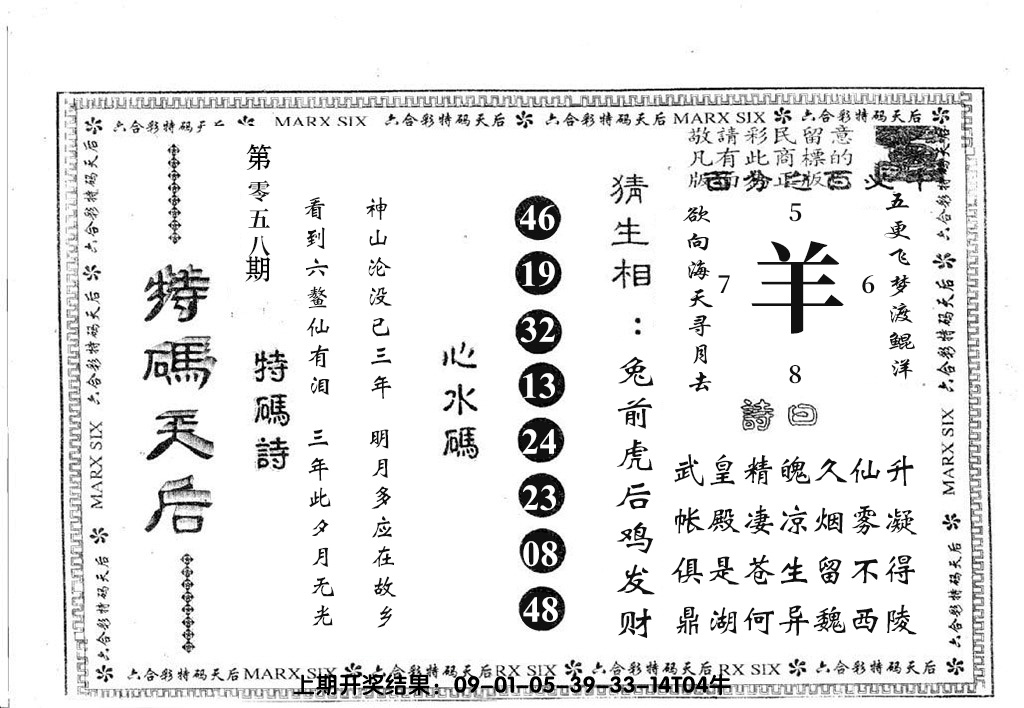 六合彩特码天后 MARX SIX 六合彩特码天后 六合彩特码天后 MARX SIX 六合彩特码天后
敬請彩民留意
凡有此商標的
五更飞梦渡鲲洋
欲向海天寻月去
5
7 羊 6
8
詩曰
武皇精魄久仙升
帐殿凄凉烟雾凝
俱是苍生留不得
鼎湖何异魏西陵
猜生相：兔前虎后鸡发财
46
19
32
13
24
23
08
48
心水碼
神山沦没已三年 明月多应在故乡
看到六鳌仙有泪 三年此夕月无光
第零五八期
特碼詩
特碼天后
六合彩特码天后 MARX SIX 六合彩特码天后
六合彩特码天后 MARX SIX 六合彩特码天后
六合彩特码天后 MARX SIX 六合彩特码天后RX SIX 六合彩特码天后RX SIX 六合彩特码天后
上期开奖结果：09-01-05-39-33-14T04牛